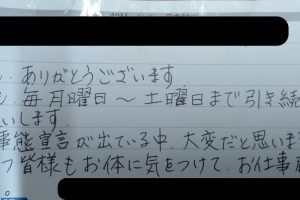 ありがとうございます
毎月曜日～土曜日まで引き続
いします。
事態宣言が出ている中、大変だと思いま
つ皆様もお体に気をつけて、お仕事
。